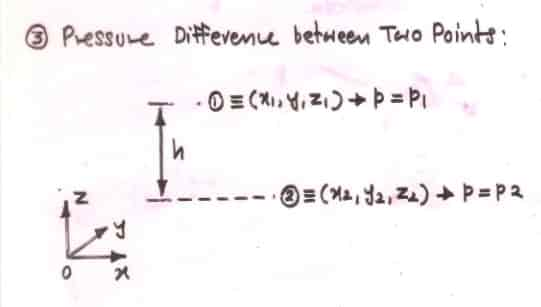 ③ Pressure Difference between Two Points:
. ① ≡ (x₁, y, z₁) → p = p₁
h
. ② ≡ (x₂, y₂, z₂) → p = p2
z
y
0 x